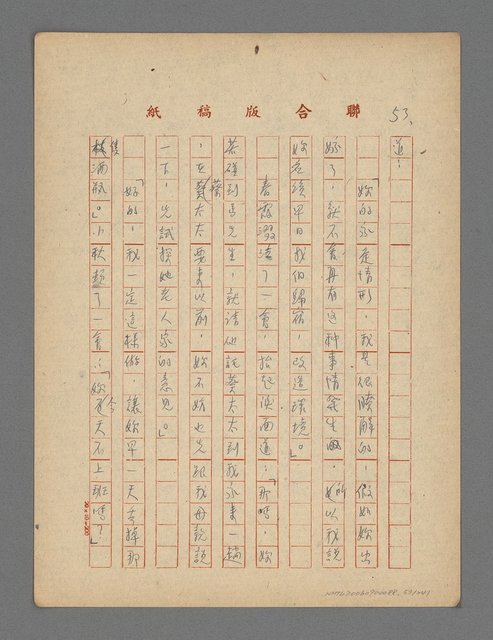 聯合版稿紙
53.
道：
「妳的家庭情形，我是很瞭解的，假如妳出
嫁了，就不會再有這种事情發生啦，所以我說
妳應該早日找個歸宿，改造環境。」
春霞啜泣了一會，抬起淚面道：「那嗎，妳
若碰到馬先生，就請他託蔡太太到我家來一趟
，在蔡太太要來以前，妳不妨也先跟我母親說
一下，先試探她老人家的意見。」
「好的，我一定這樣做，讓妳早一天去掉那
隻滿瓶。」小秋頓了一會：「妳今天不上班嗎？」
20×25=500